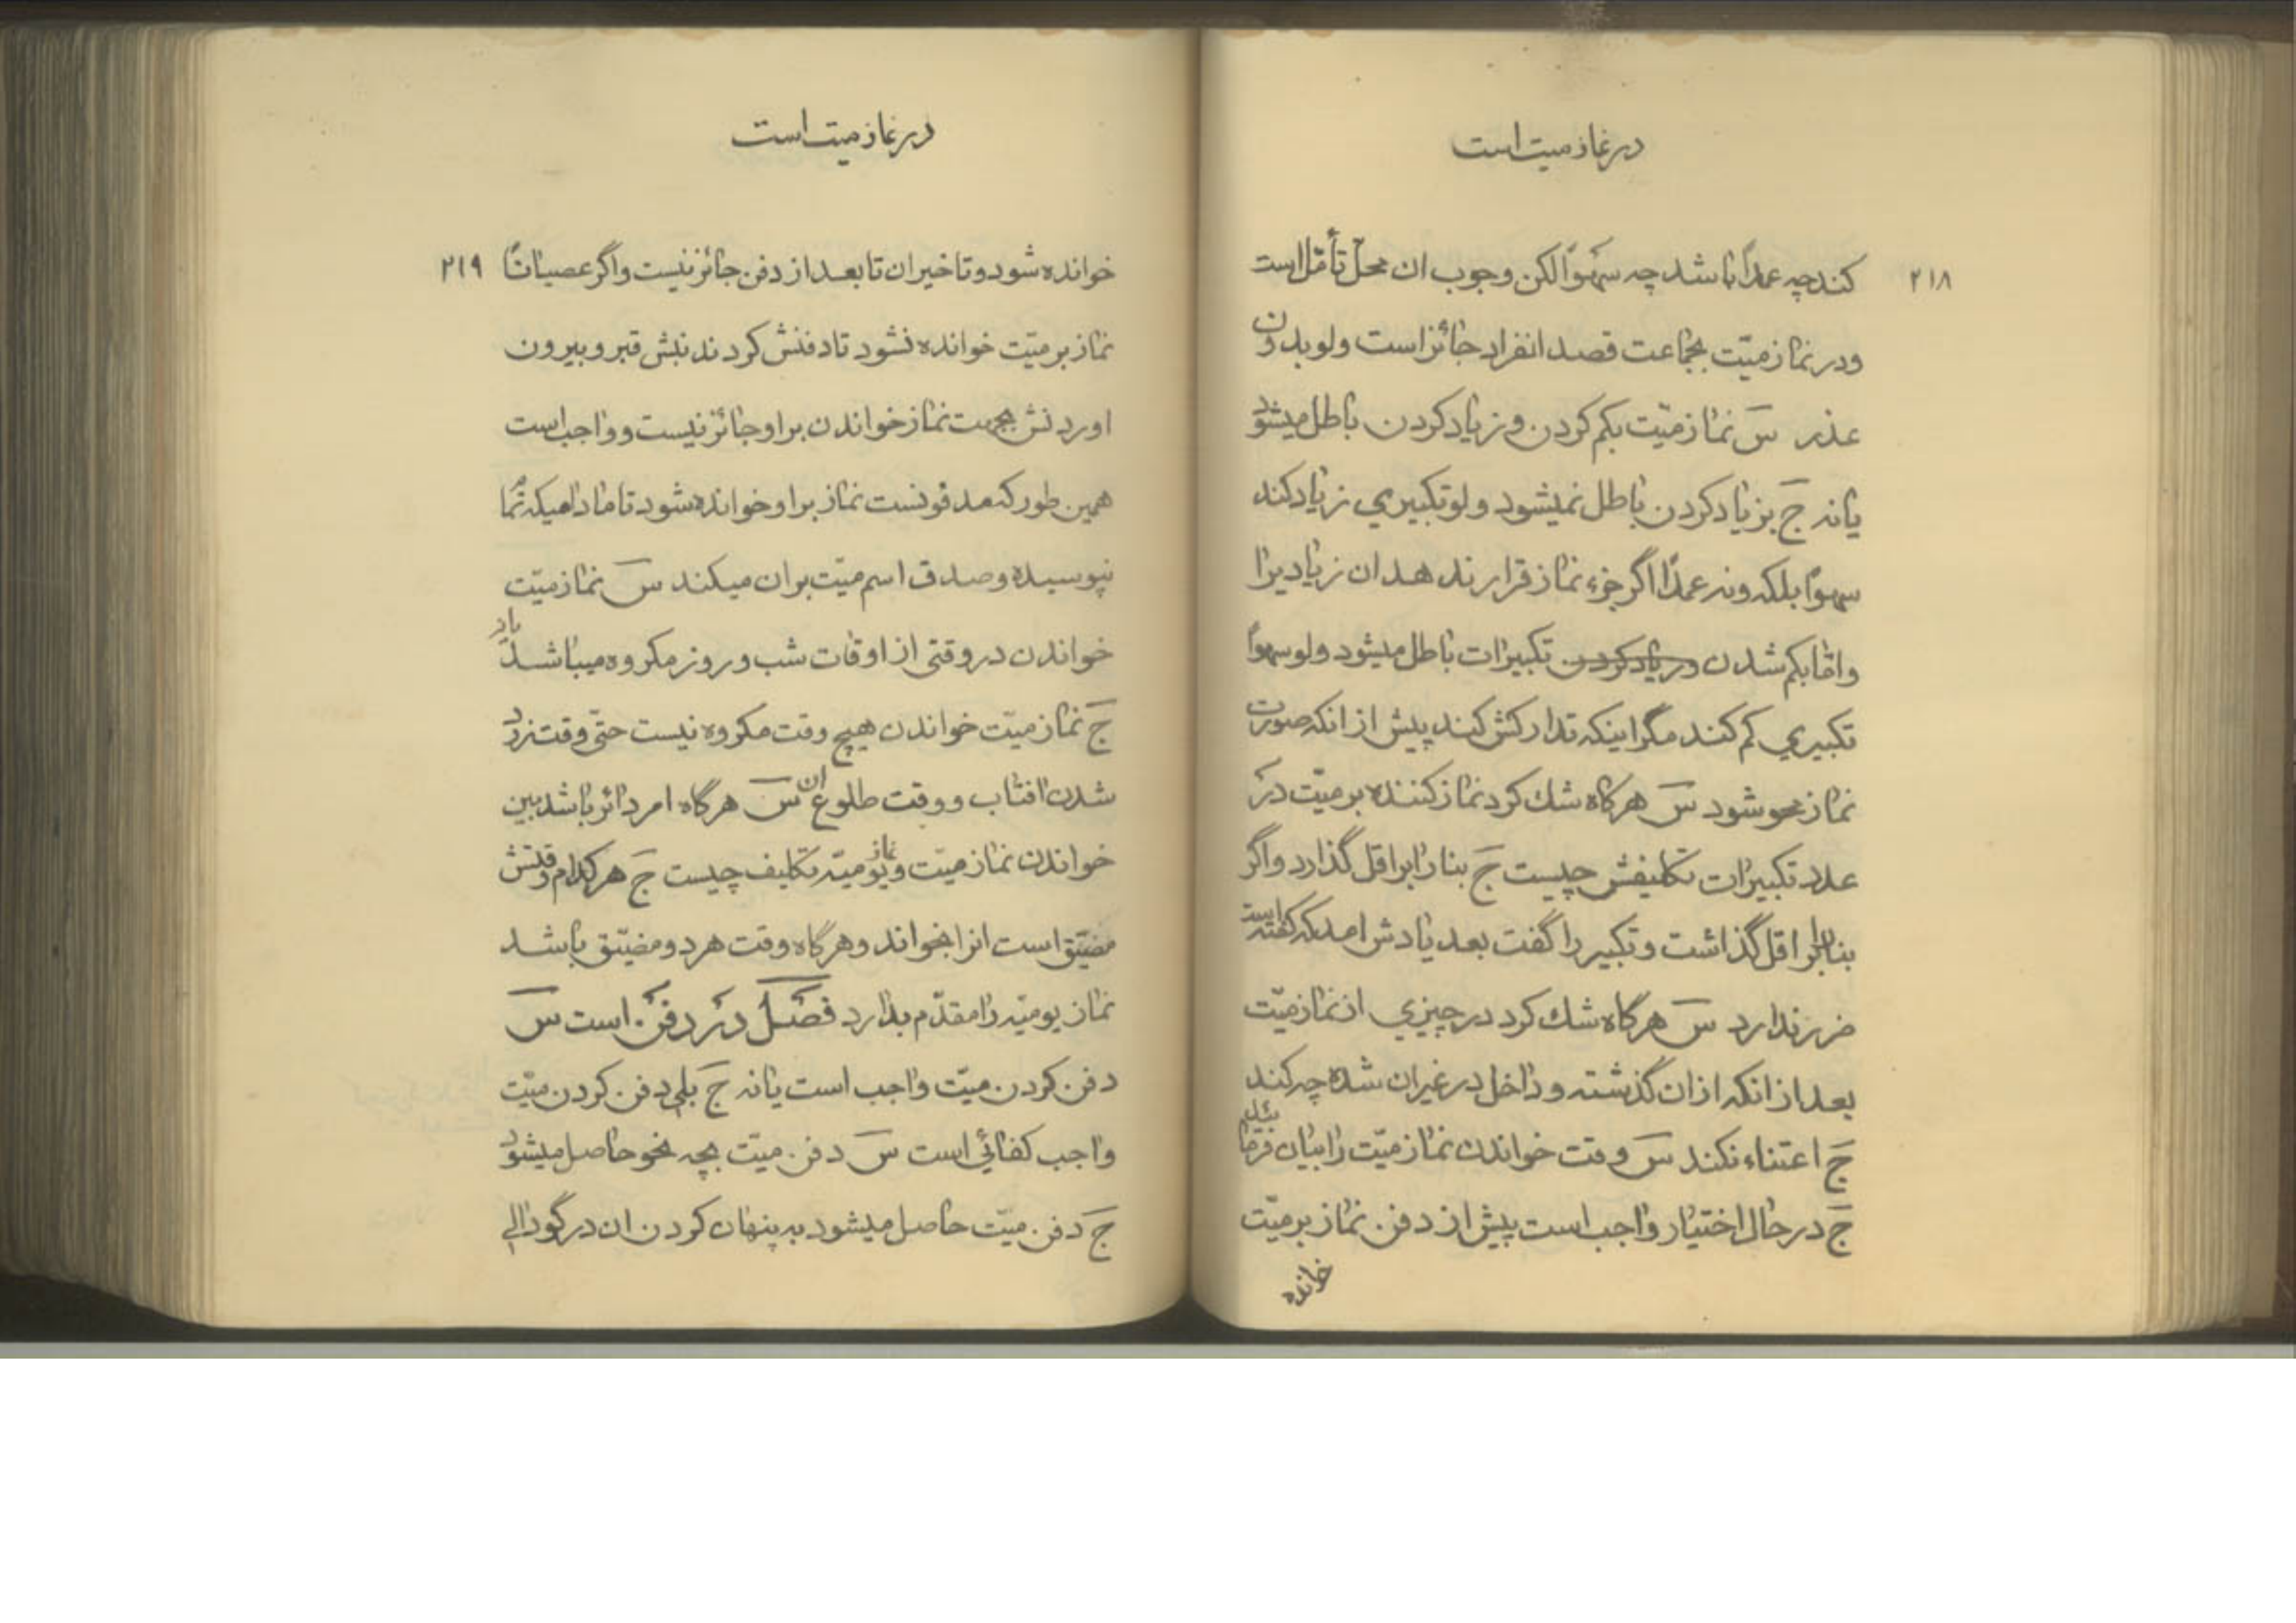 در نماز میت است
۲۱۸
کند چه عمداً باشد چه سهواً لکن وجوب ان محلّ تأمّل است
ودر نماز میّت بجماعت قصد انفراد جائز است ولو بدون
عذر سَ نماز میّت بکم کردن و زیاد کردن باطل میشود
یا نه جَ بزیاد کردن باطل نمیشود ولو تکبیری زیاد کند
سهواً بلکه ونه عمداً اگر جزء نماز قرار ندهد ان زیاد یرا
وامّا بکم شدن وزیاد کردن تکبیرات باطل میشود ولو سهواً
تکبیری کم کند مگر اینکه تدارکش کند پیش از انکه صورت
نماز محو شود سَ هرگاه شك کرد نماز کننده بر میّت در
عدد تکبیرات تکلیفش چیست جَ بنا را بر اقل گذارد واگر
بنا بر اقل گذاشت و تکبیر را گفت بعد یادش امد که گفته است
ضرر ندارد سَ هرگاه شك کرد در چیزی از نماز میّت
بعد از انکه از ان گذشته و داخل در غیر ان شده چه کند
جَ اعتناء نکند سَ وقت خواندن نماز میّت را بیان فرمائید
جَ در حال اختیار واجب است پیش از دفن نماز بر میّت
خوانده
در نماز میت است
۲۱۹
خوانده شود و تاخیر ان تا بعد از دفن جائز نیست واگر عصیاناً
نماز بر میّت خوانده نشود تا دفنش کردند نبش قبر و بیرون
اوردنش بجهت نماز خواندن بر او جائز نیست و واجب است
همین طور که مدفونست نماز بر او خوانده شود تا مادامیکه تمام
نپوسیده وصدق اسم میّت بر ان میکند سَ نماز میّت
خواندن در وقتی از اوقات شب و روز مکروه میباشد یا نه
جَ نماز میّت خواندن هیچ وقت مکروه نیست حتّی وقت زرد
شدن افتاب و وقت طلوع ان سَ هرگاه امر دائر باشد بین
خواندن نماز میّت و نماز یومیّه تکلیف چیست جَ هر کدام وقتش
مضیّق است انرا بخواند و هرگاه وقت هر دو مضیّق باشد
نماز یومیّه را مقدّم بدارد فصل در دفن است سَ
دفن کردن میّت واجب است یا نه جَ بلی دفن کردن میّت
واجب کفائی است سَ دفن میّت بچه نحو حاصل میشود
جَ دفن میّت حاصل میشود به پنهان کردن ان در گودالی